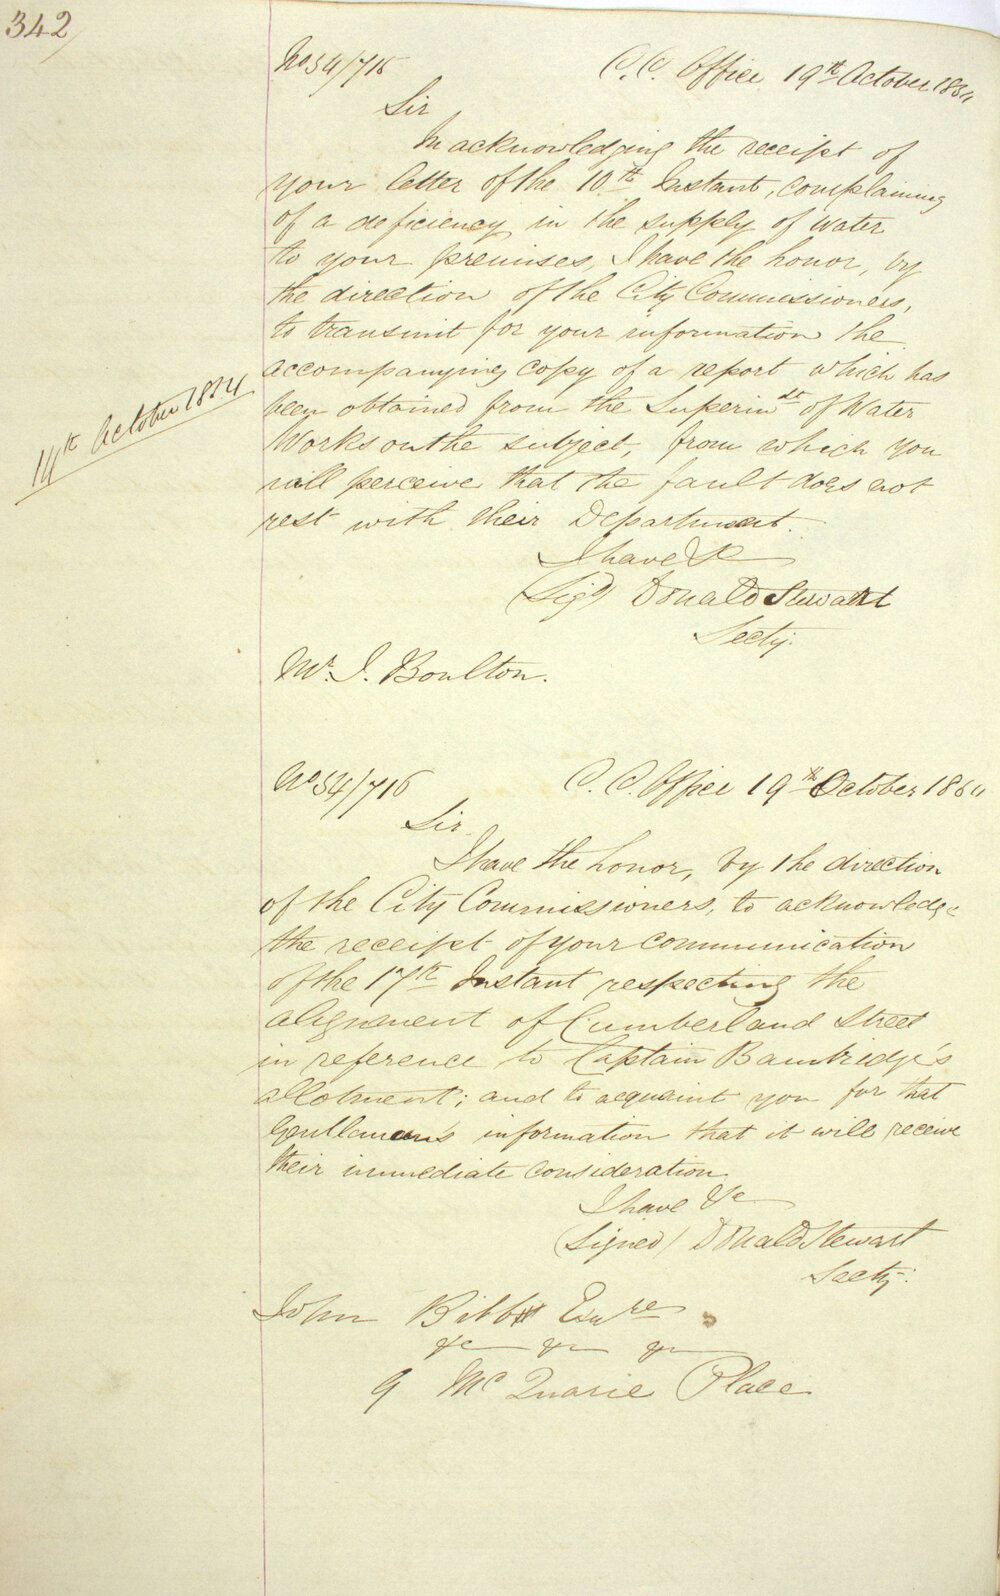 342
No 54/715 C. C. Office 19th October 1854
Sir
In acknowledging the receipt of
your letter of the 10th Instant, complaining
of a deficiency in the supply of Water
to your premises, I have the honor, by
the direction of the City Commissioners,
to transmit for your information the
accompanying copy of a report which has
14th October 1854
been obtained from the Superindt of Water
Works on the subject, from which you
will perceive that the fault does not
rest with their Department.
I have &c
(Sigd) Donald Stewart
Secty.
Mr. J. Boulton.
No 54/716 C. C. Office 19th October 1854
Sir
I have the honor, by the direction
of the City Commissioners, to acknowledge
the receipt of your communication
of the 17th Instant respecting the
alignment of Cumberland Street
in reference to Captain Bambridge's
allotment; and to acquaint you for that
Gentleman's information that it will receive
their immediate consideration
I have &c
(Signed) Donald Stewart
Secty.
John Bibb Esqre
&c &c &c
9 McQuarie Place